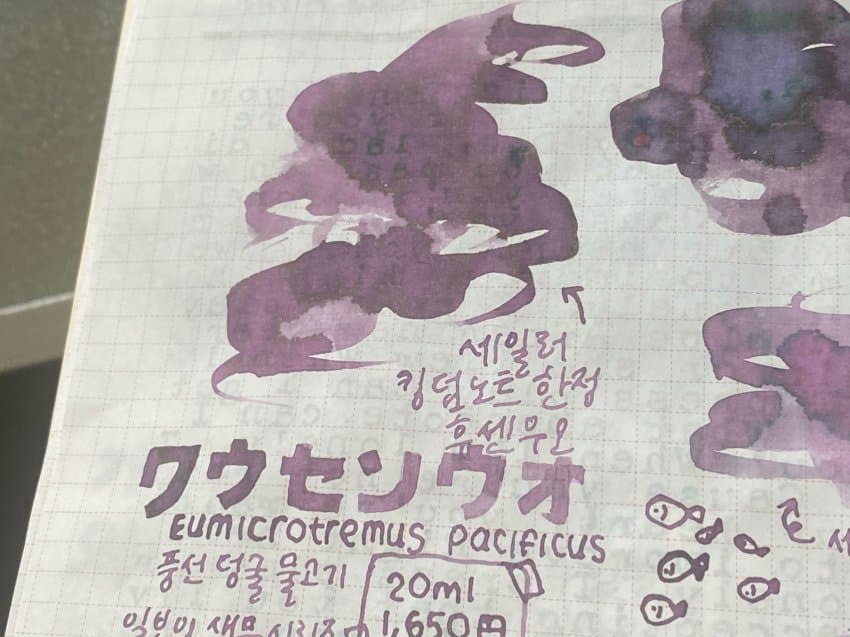 세일러
킹덤노트 한정
후센우오
ワウセンウオ
Eumicrotremus pacificus
풍선 덩굴 물고기
20ml
일본의 생물 시리즈
1,650円